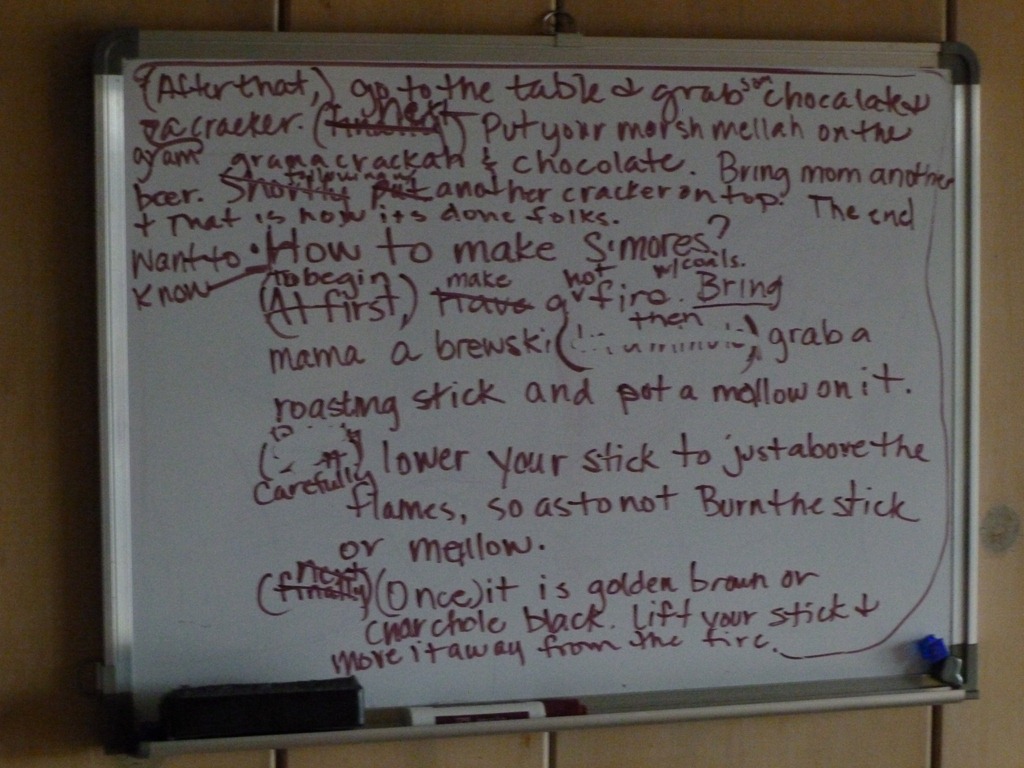 Want to • How to make S'mores?
Know
To begin make hot w/coals.
(At first,) Have a fire. Bring
then
mama a brewski ( ) grab a
roasting stick and pot a mellow on it.
( ) lower your stick to just above the
Carefully
flames, so as to not Burn the stick
or mellow.
next
(finally) (Once) it is golden brown or
charchole black. Lift your stick &
move it away from the fire.
(After that,) go to the table & grab som chocalate &
next
a cracker. (finally) Put your morshmellah on the
gram
grama crackah & chocolate. Bring mom another
following w
beer. Shortly put another cracker on top. The end
+ That is how its done folks.